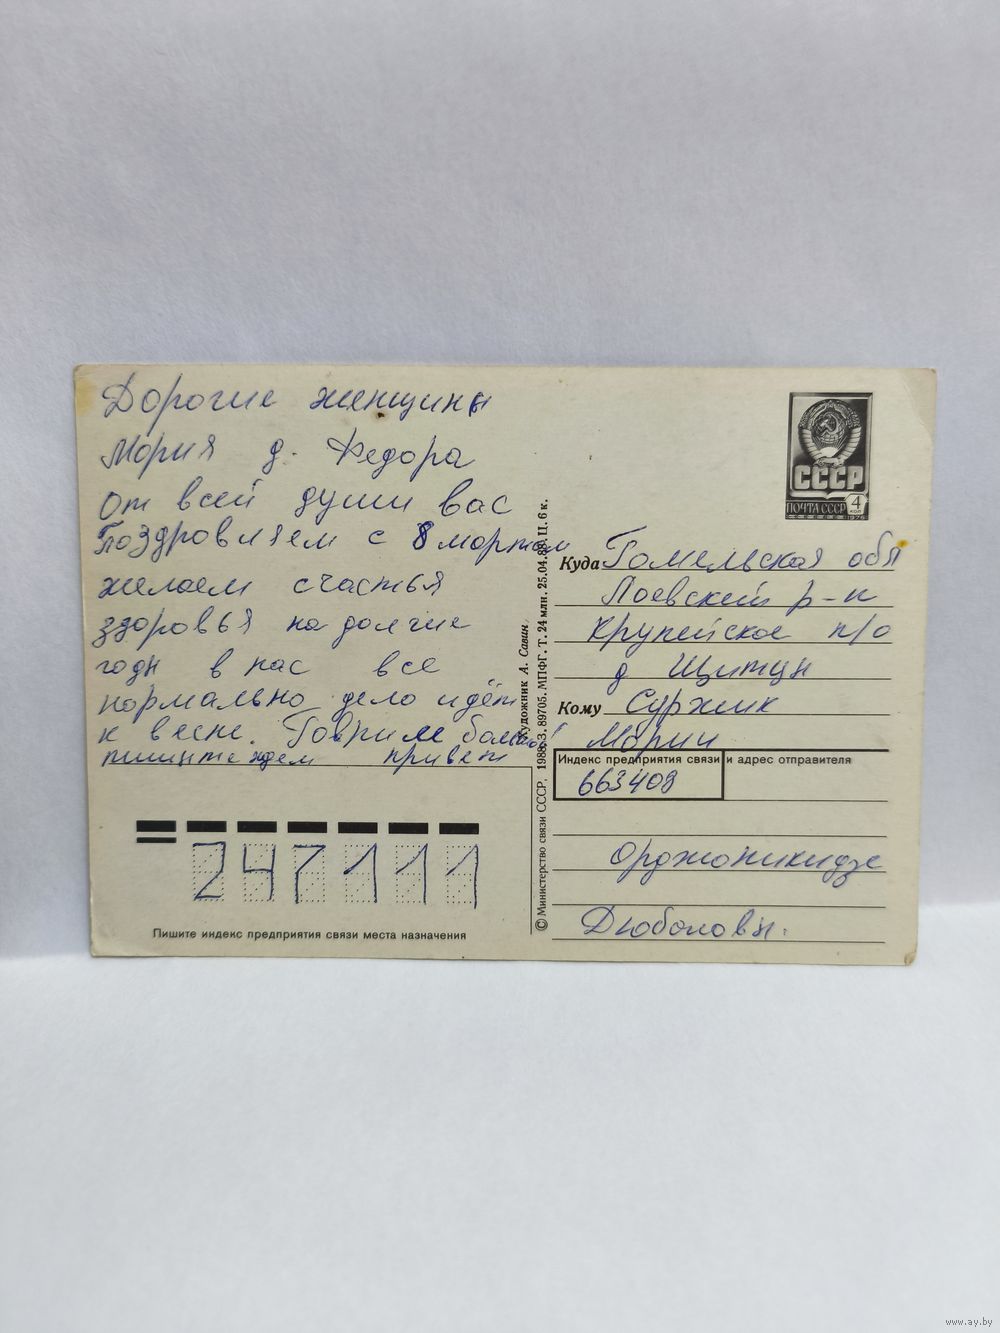 Дорогие женщины
Мория д. Федора
от всей души вас
Поздровляем с 8 мортом
желаем счастья
здоровья на долгие
годы в нас все
нормально дело идёт
к весне.
пишите ждем привет
СССР
ПОЧТА СССР 4 коп
1976
Куда Гомельская обл
Лоевский р-н
Крупейское п/о
д Щитцы
Кому Суржик
Марии
Индекс предприятия связи и адрес отправителя
663408
Орджоникидзе
Дюболовы.
© Министерство связи СССР, 1988. З. 89705. МПФГ. Т. 24 млн. 25.04.88. Ц. 6 к.
Художник А. Савин.
247111
Пишите индекс предприятия связи места назначения
www.ay.by